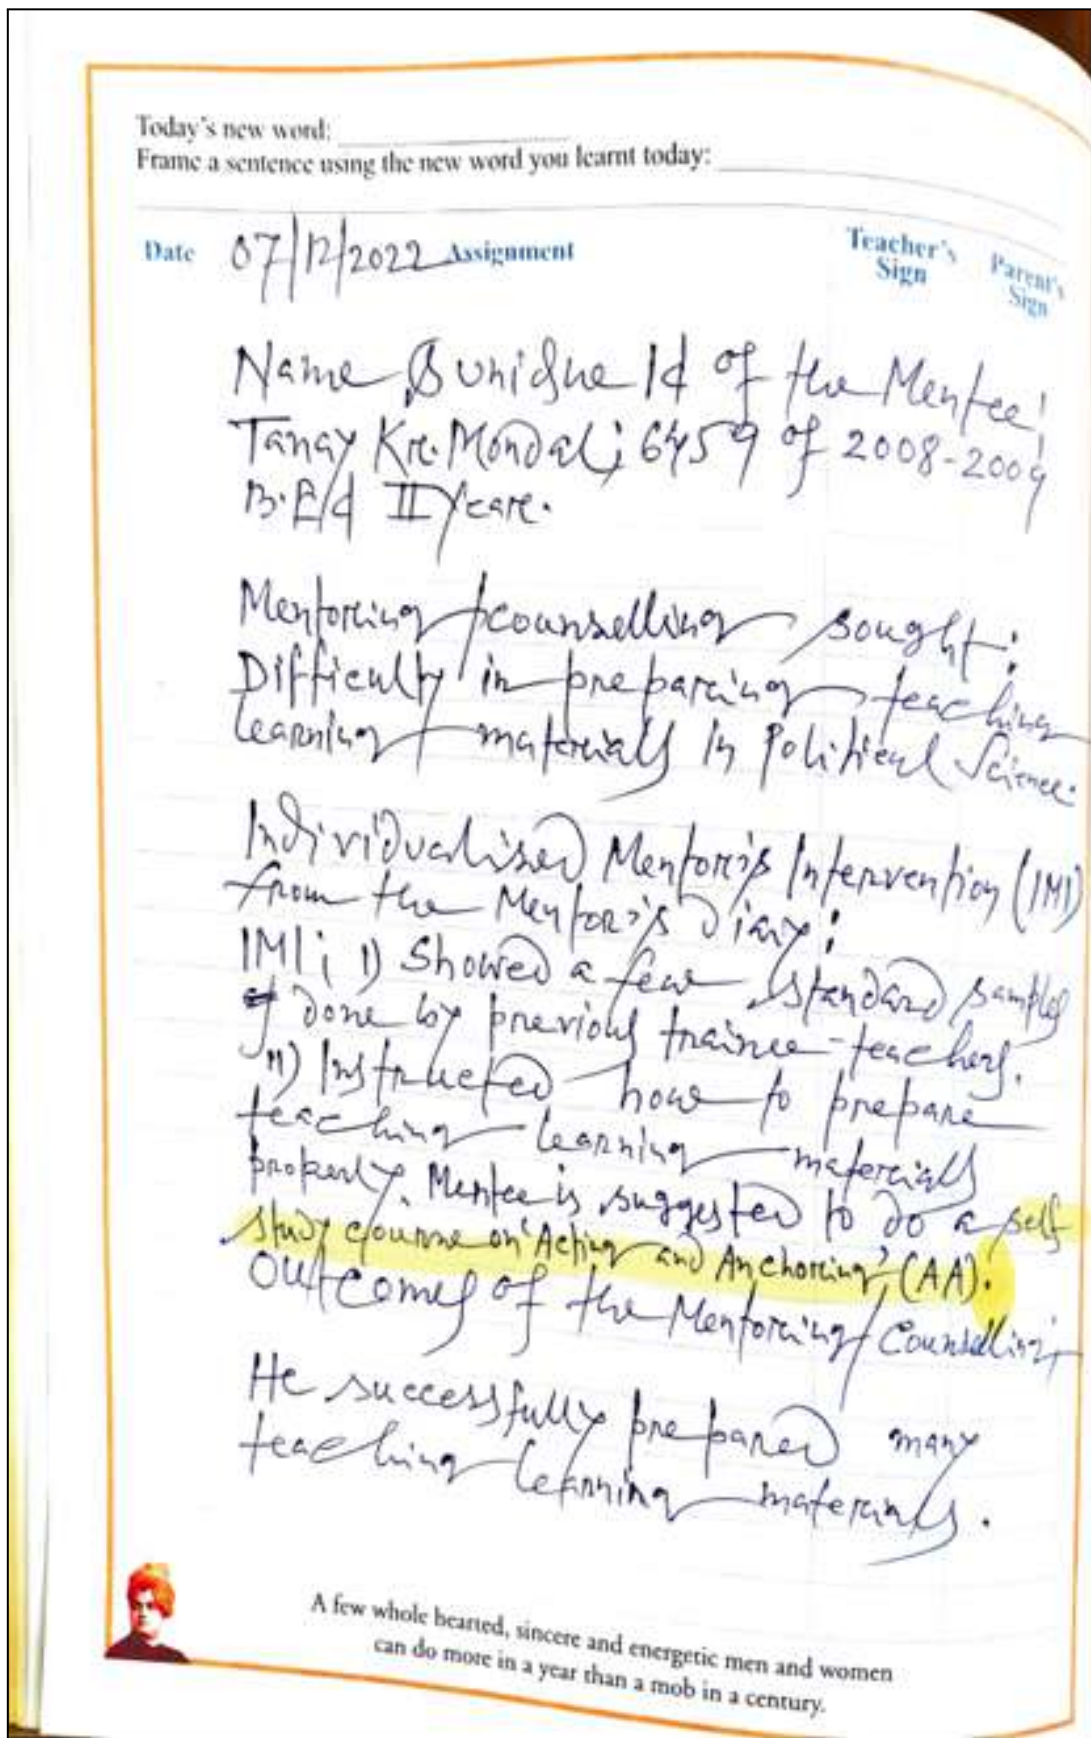 Today's new word:
Frame a sentence using the new word you learnt today:
Date 07/12/2022 Assignment Teacher's Sign Parent's Sign
Name & unique Id of the Mentee:
Tanay Kr. Mondal; 6459 of 2008-2009
B.Ed II Year.
Mentoring/counselling sought:
Difficulty in preparing teaching
learning materials in Political Science.
Individualised Mentor's Intervention (IMI)
from the Mentor's Diary:
IMI: I) Showed a few standard samples
of done by previous trainee-teachers.
II) Instructed how to prepare
teaching learning materials
properly. Mentee is suggested to do a self
study course on 'Acting and Anchoring' (AA).
Outcomes of the Mentoring/Counselling:
He successfully prepared many
teaching learning materials.
A few whole hearted, sincere and energetic men and women
can do more in a year than a mob in a century.